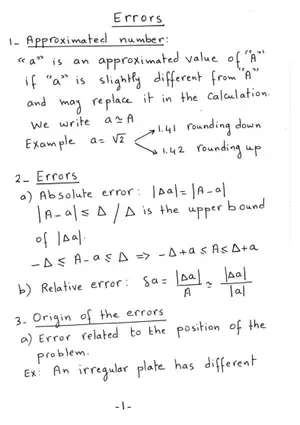 Errors
1- Approximated number:
"a" is an approximated value of "A"
if "a" is slightly different from "A"
and may replace it in the calculation.
We write a≃A
Example a=√2 1.41 rounding down
1.42 rounding up
2- Errors
a) Absolute error: |Δa|=|A-a|
|A-a|≤Δ / Δ is the upper bound
of |Δa|.
-Δ≤A-a≤Δ => -Δ+a≤A≤Δ+a
b) Relative error: δa=|Δa|/A ≃ |Δa|/|a|
3- Origin of the errors
a) Error related to the position of the
problem.
Ex: An irregular plate has different
-1-